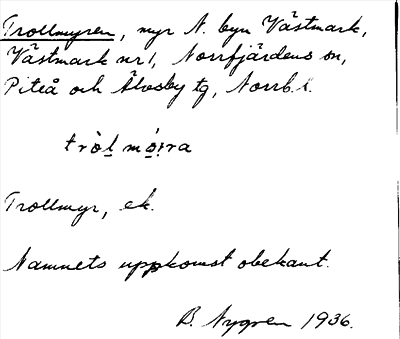 Trollmyren, myr N. byn Västmark,
Västmark nr 1, Norrfjärdens sn,
Piteå och Älvsby tg, Norrb. l.
Trollmyr, ek.
Namnets uppkomst obekant.
B. Nygren 1936.